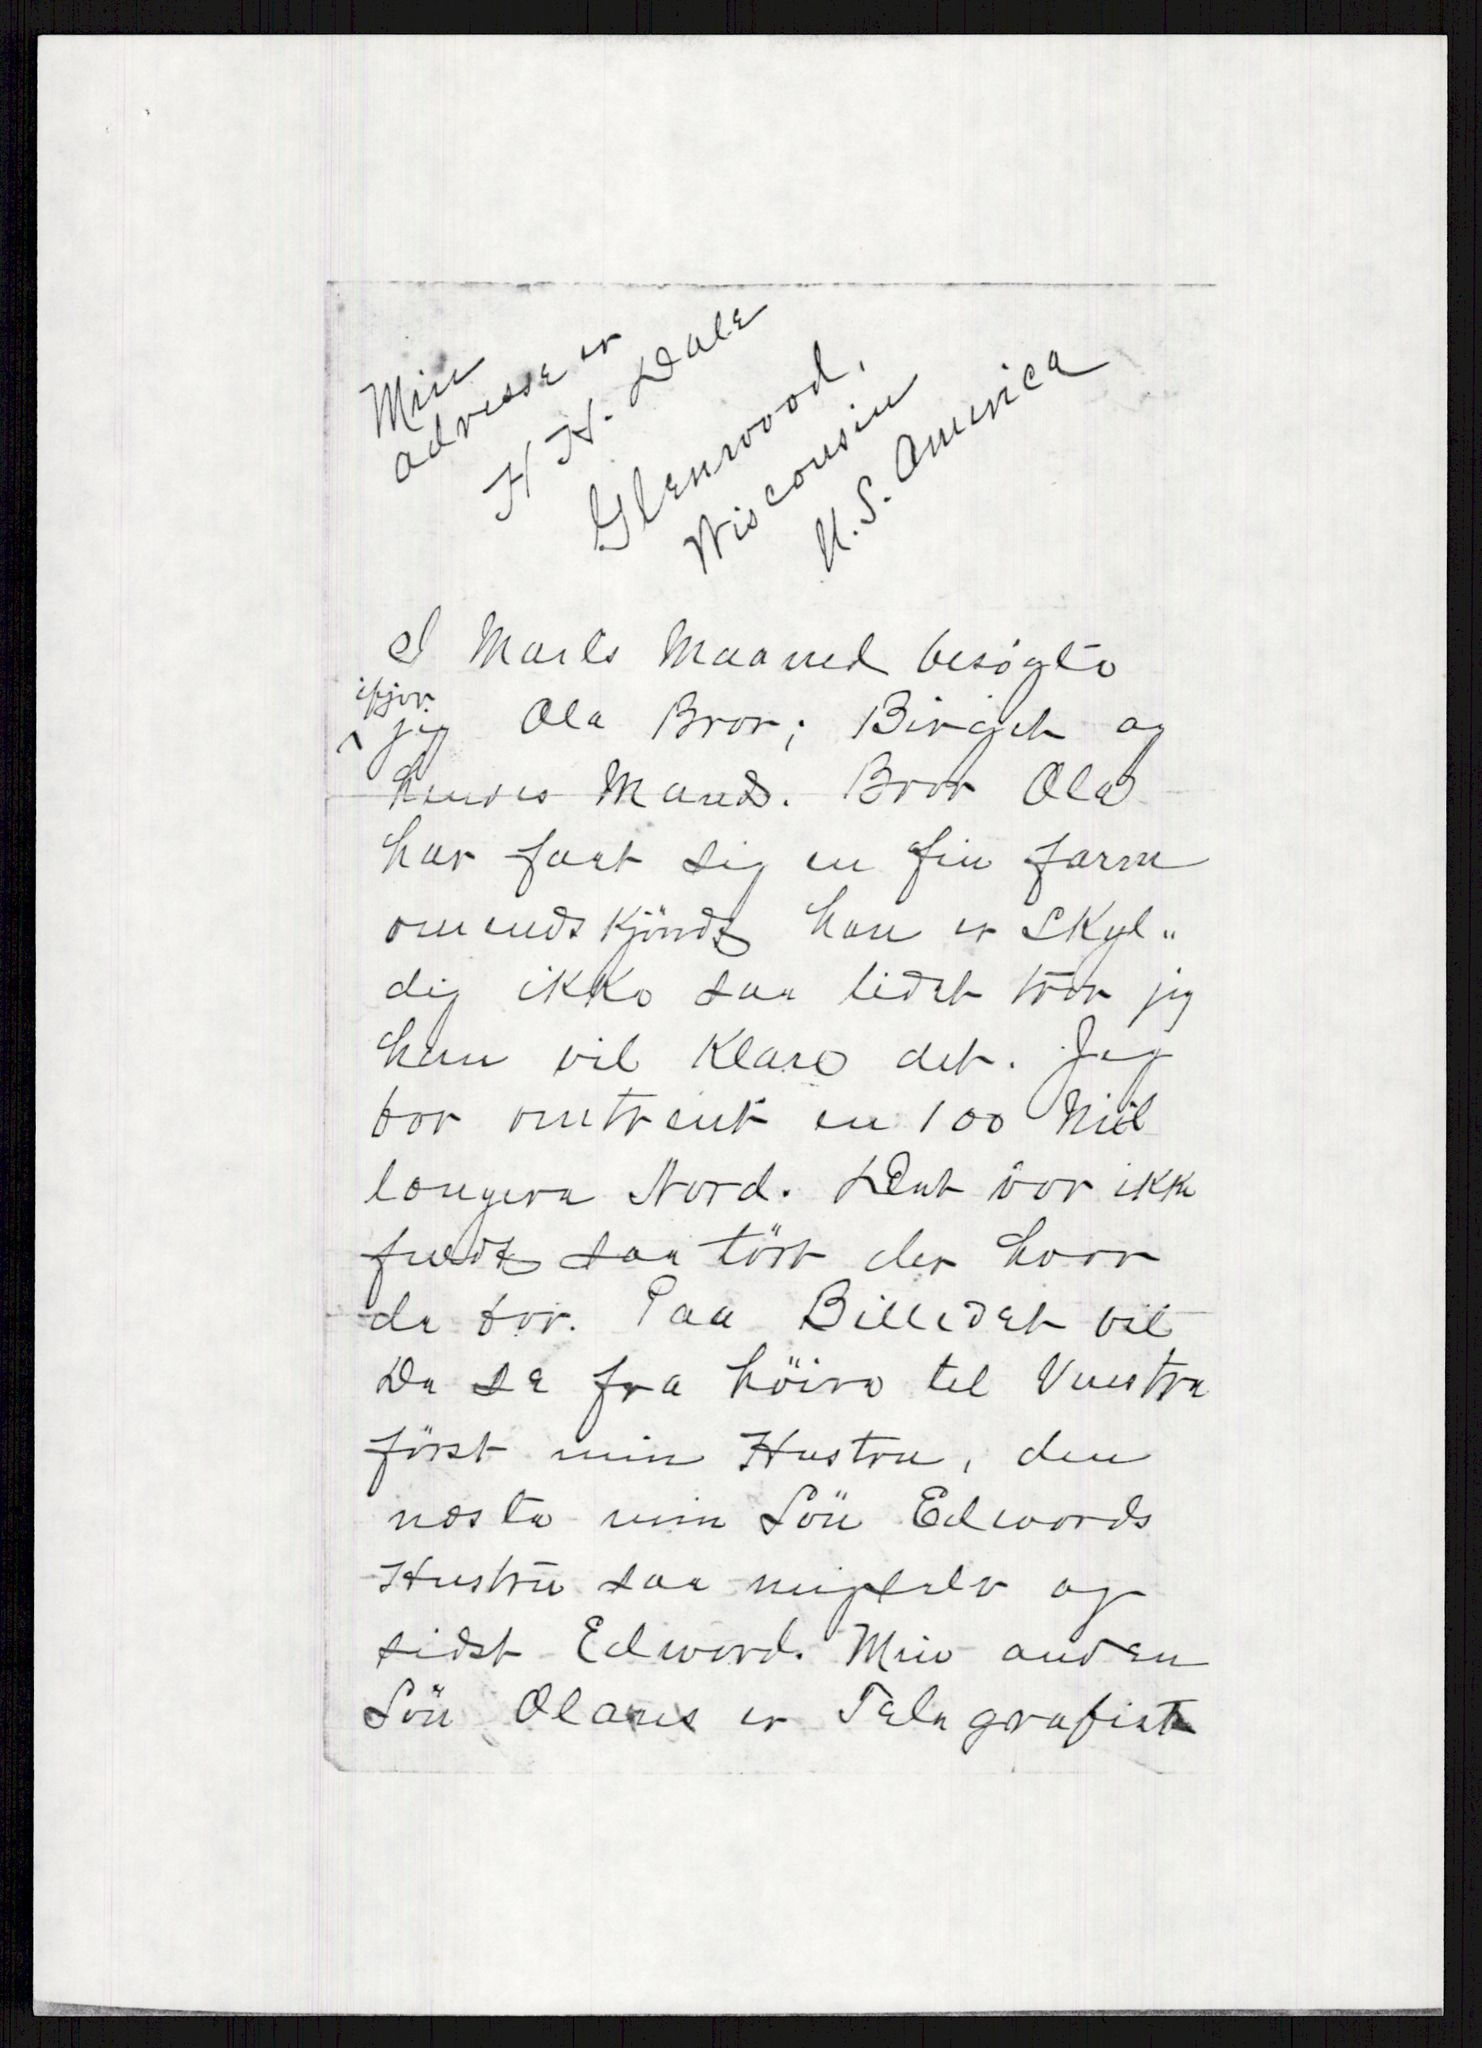 Min
adresse er
H H. Dale
Glenwood,
Wisconsin
U.S. America
I Marts Maaned besögte
ifjor
jeg Ola Bror; Birgit og
hendes Mand. Bror Ola
har faat sig en fin farm
omendskjöndt han er Skyl„
dig ikke saa lidet tror jeg
han vil klare det. Jeg
bor omtrent en 100 Mil
længere Nord. Det var ikke
fuldt saa tört der hvor
de bor. Paa Billedet vil
Du se fra höire til Venstre
först min Hustru, den
næste min Sön Edwards
Hustru saa migselv og
sidst Edward. Min anden
Sön Olaus er Telegrafist